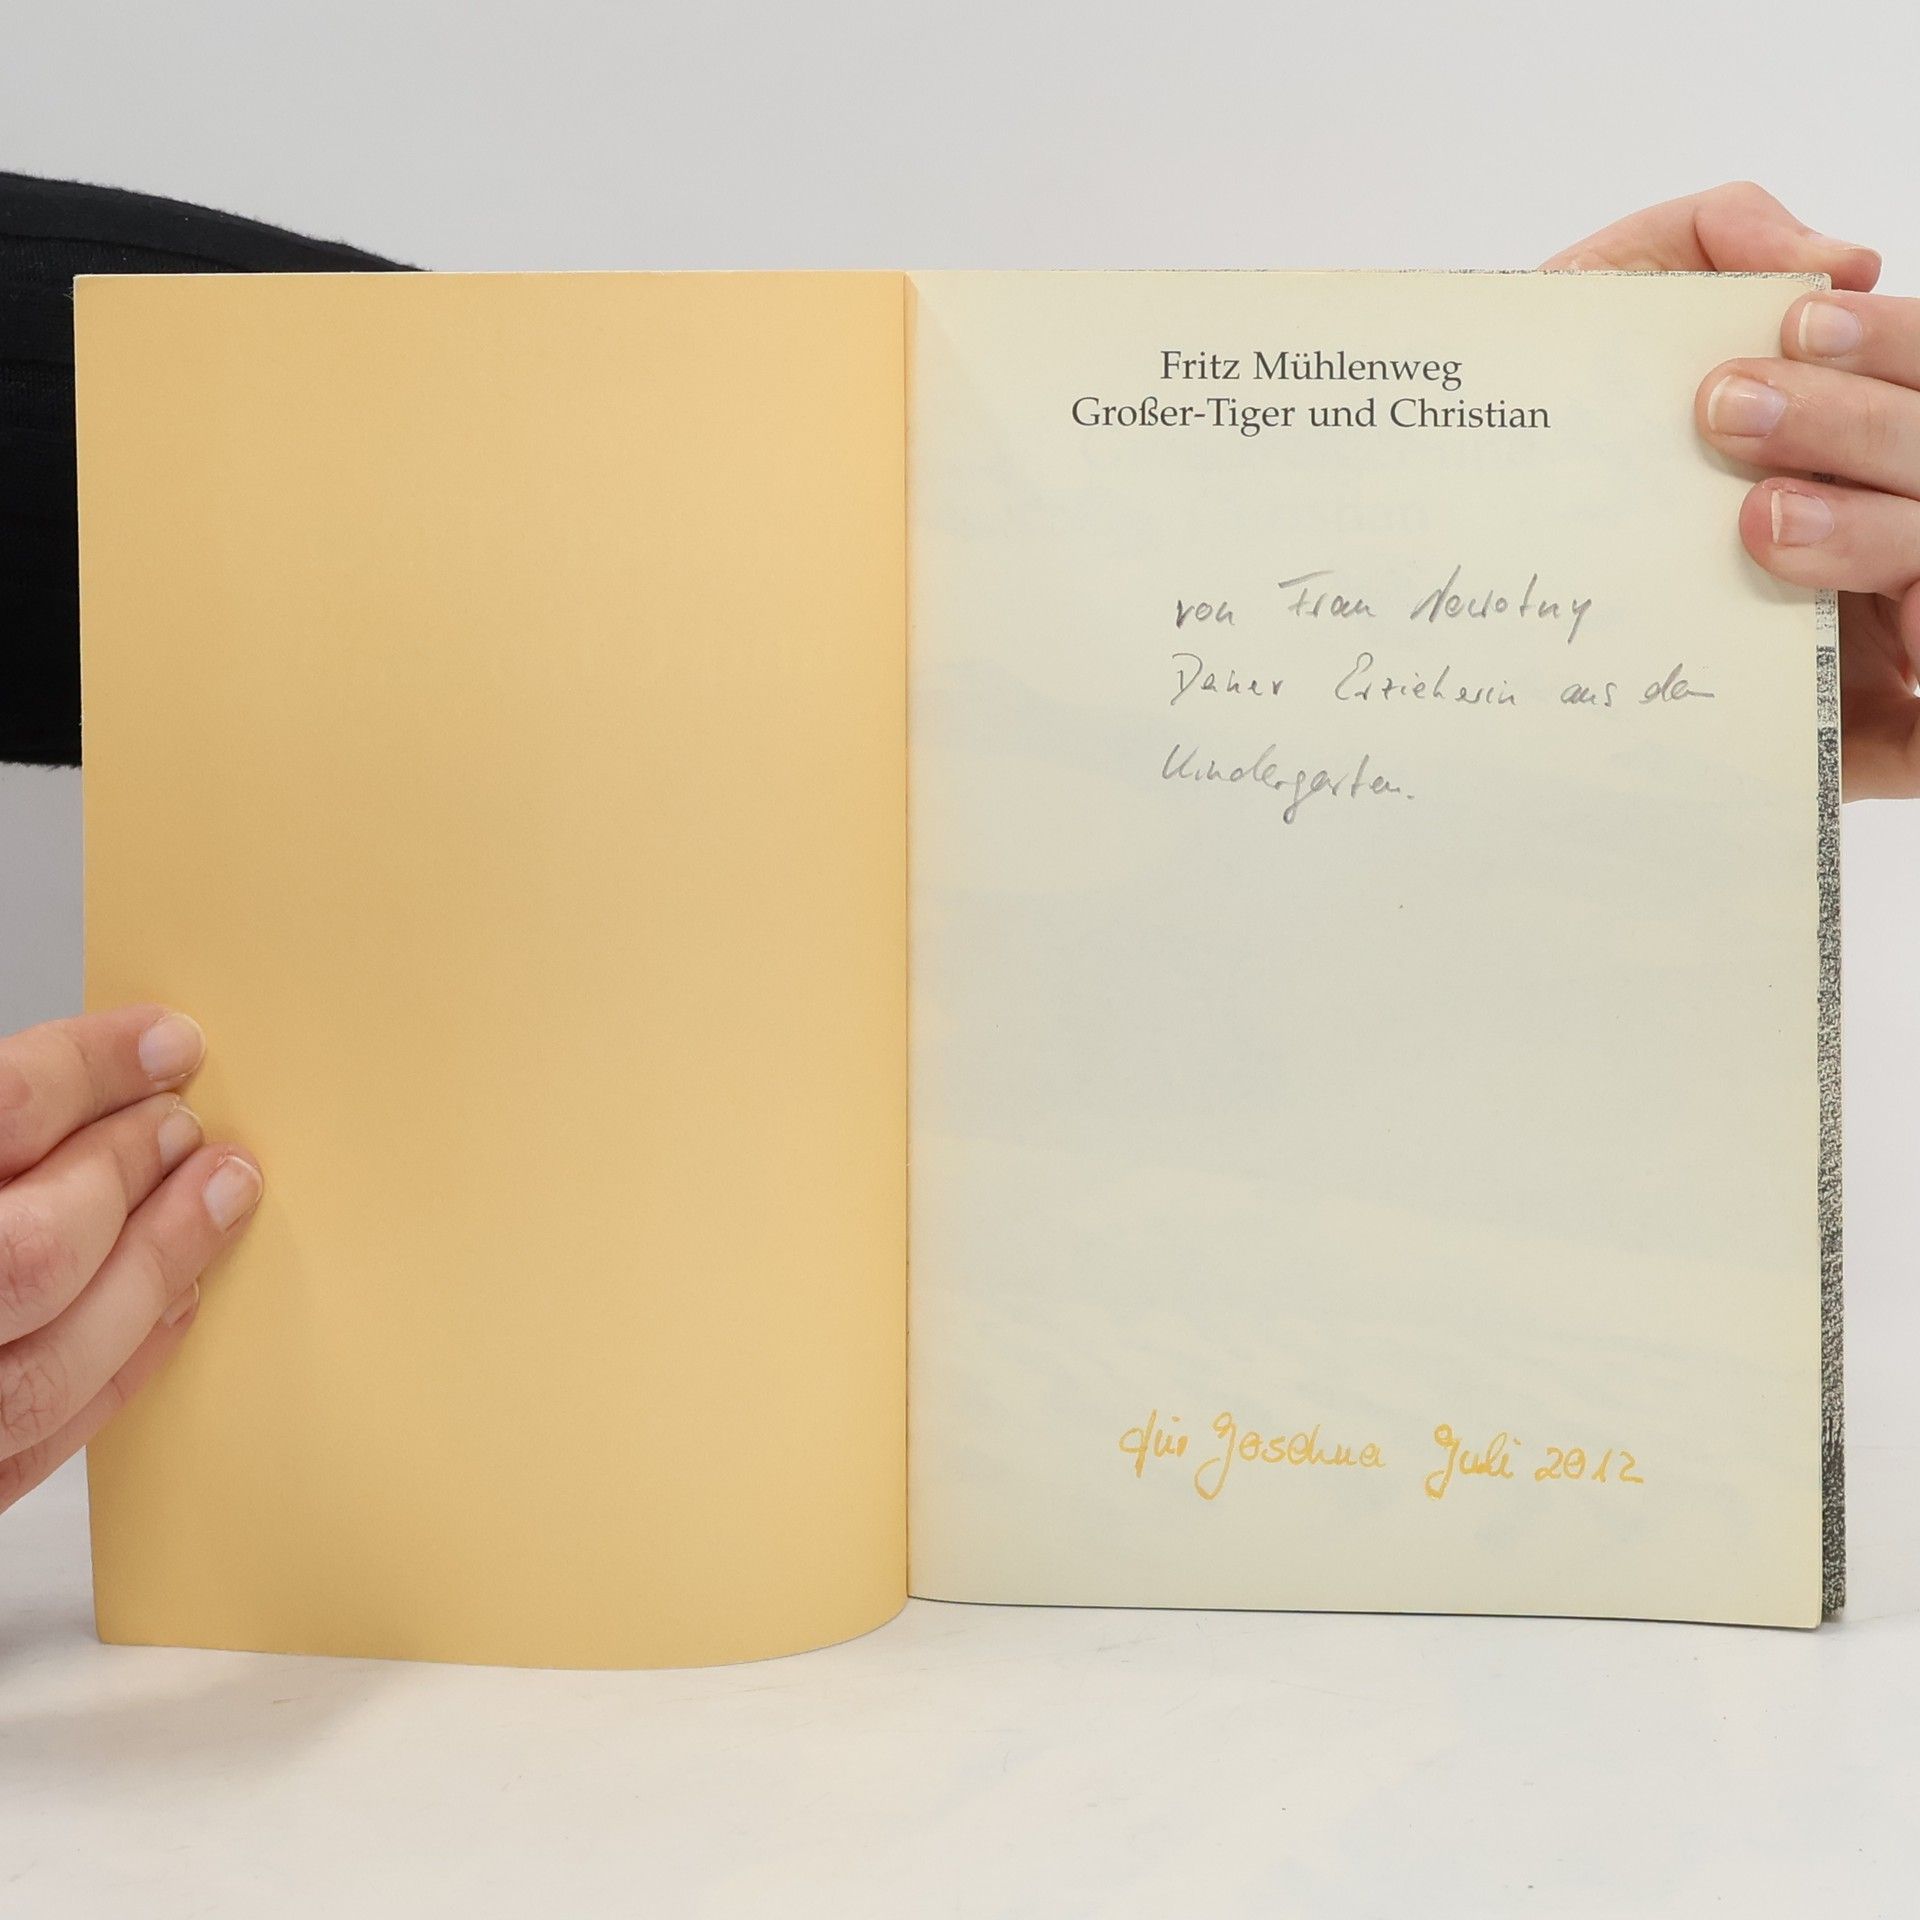 Fritz Mühlenweg
Großer-Tiger und Christian
von Frau Newotny
Deiner Erzieherin aus dem
Kindergarten.
für Joschua Juli 2012